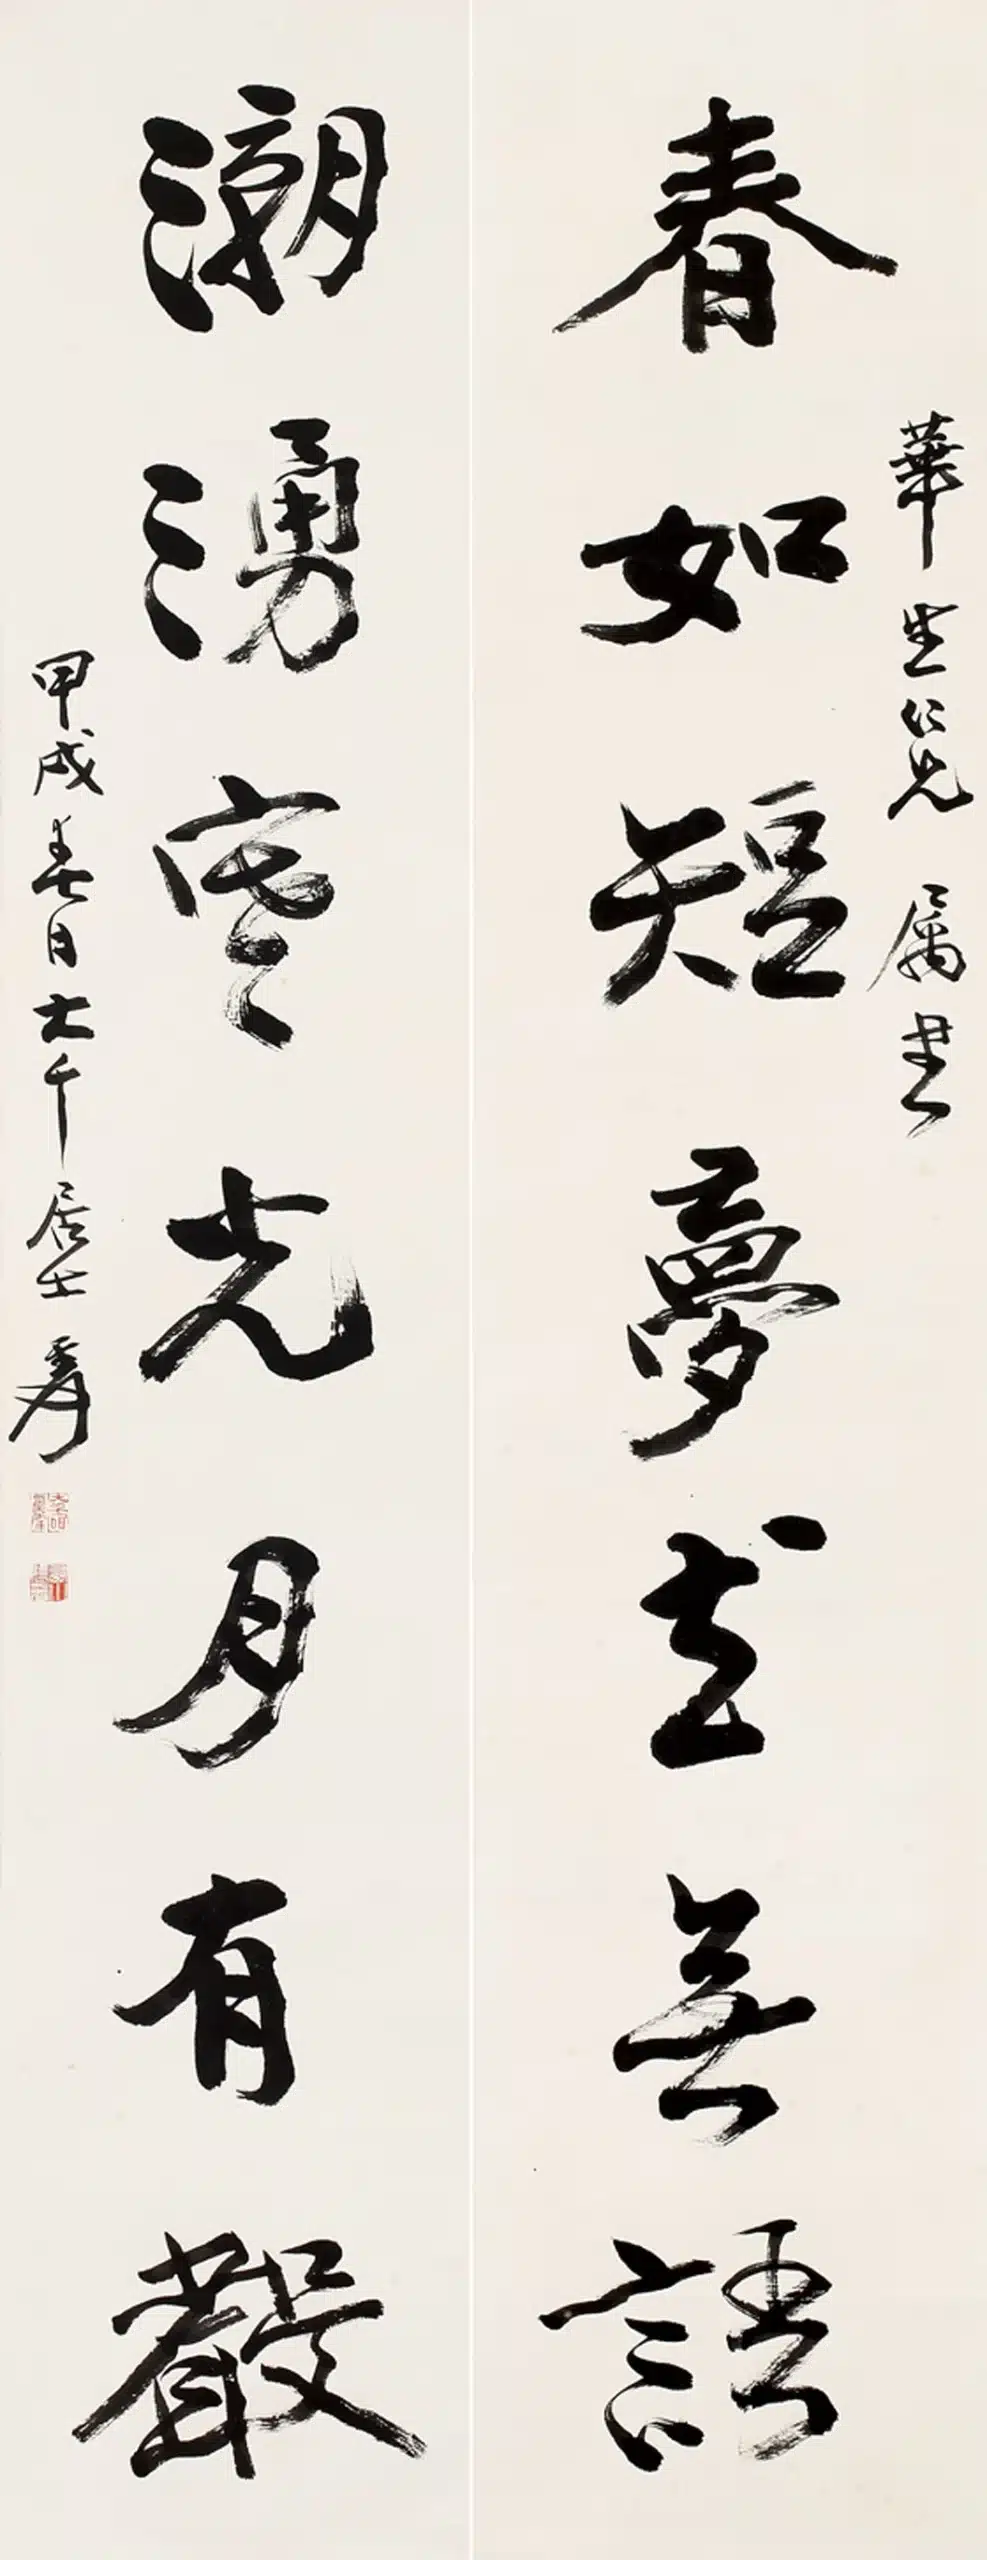 華生仁兄屬書
春如短夢花無語
潮湧寒光月有聲
甲戌春日大千居士爰